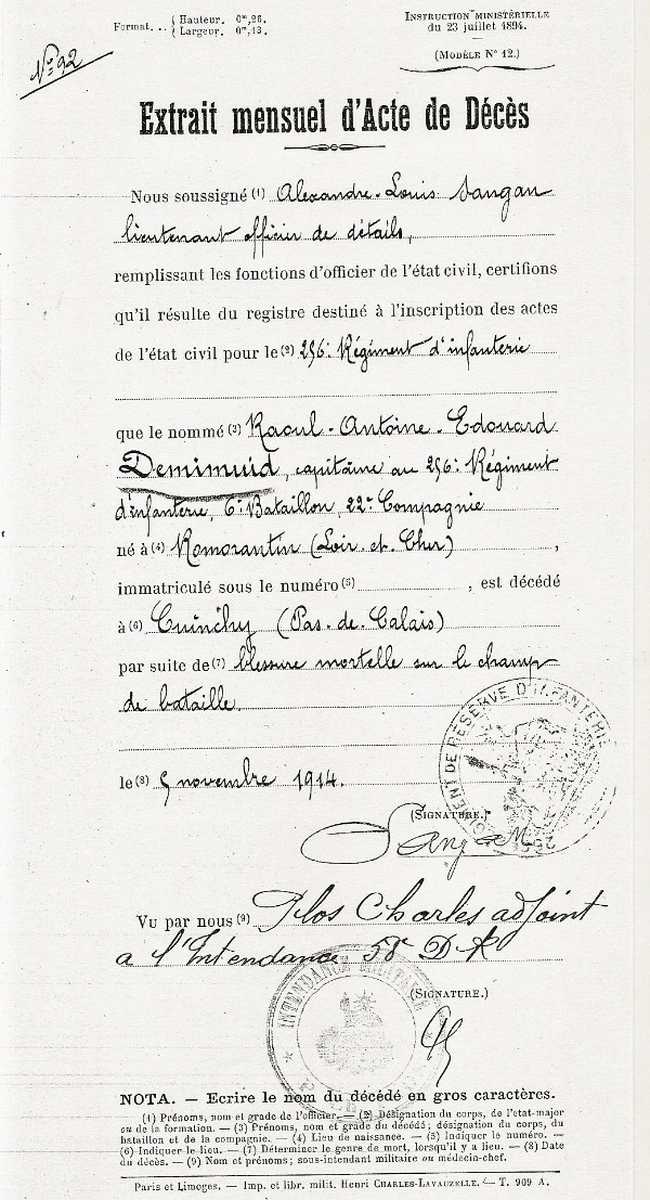 Format. . . { Hauteur. 0m,26.
{ Largeur. 0m,13.
INSTRUCTION MINISTÉRIELLE
du 23 juillet 1894.
(MODÈLE N° 12.)
N° 92
Extrait mensuel d'Acte de Décès
Nous soussigné (1) Alexandre-Louis Sangan
lieutenant officier de détails,
remplissant les fonctions d'officier de l'état civil, certifions
qu'il résulte du registre destiné à l'inscription des actes
de l'état civil pour le (2) 256e Régiment d'infanterie
que le nommé (3) Raoul-Antoine-Edouard
Demimuid, capitaine au 256e Régiment
d'infanterie, 6e Bataillon, 22e Compagnie
né à (4) Romorantin (Loir-et-Cher) ,
immatriculé sous le numéro (5) , est décédé
à (6) Cuinchy (Pas-de-Calais)
par suite de (7) blessure mortelle sur le champ
de bataille.
le (8) 5 novembre 1914.
RÉGIMENT DE RÉSERVE D'INFANTERIE
(SIGNATURE.)
Vu par nous (9) Plos Charles adjoint
a l'Intendance
INTENDANCE MILITAIRE
(SIGNATURE.)
NOTA. — Ecrire le nom du décédé en gros caractères.
(1) Prénoms, nom et grade de l'officier. — (2) Désignation du corps, de l'état-major
ou de la formation. — (3) Prénoms, nom et grade du décédé; désignation du corps, du
bataillon et de la compagnie. — (4) Lieu de naissance. — (5) Indiquer le numéro. —
(6) Indiquer le lieu. — (7) Déterminer le genre de mort, lorsqu'il y a lieu. — (8) Date
du décès. — (9) Nom et prénoms; sous-intendant militaire ou médecin-chef.
Paris et Limoges. — Imp. et libr. milit. Henri CHARLES-LAVAUZELLE. — T. 909 A.